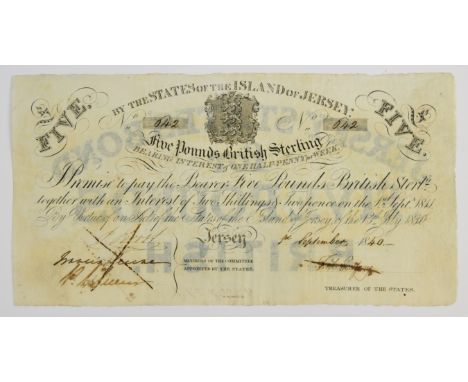 BY THE STATES OF THE ISLAND OF JERSEY.
FIVE. No 042 No 042 FIVE.
Five Pounds British Sterling
BEARING INTEREST of ONE HALF PENNY per WEEK.
I Promise to pay the Bearer Five Pounds British Sterlg.
together with an Interest of Two Shillings & Two pence on the 1st Septr. 1841
By Virtue of an Act of the States of the Island of Jersey, of the
Jersey 1st September, 1840
MEMBERS OF THE COMMITTEE
APPOINTED BY THE STATES.
TREASURER OF THE STATES.